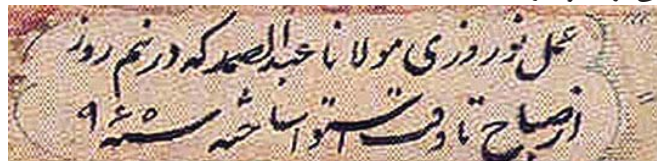 عمل نوروزی مولانا عبدالصمد که در نیم روز
از صباح تا وقت استوا ساخته سنه ۹۶۵